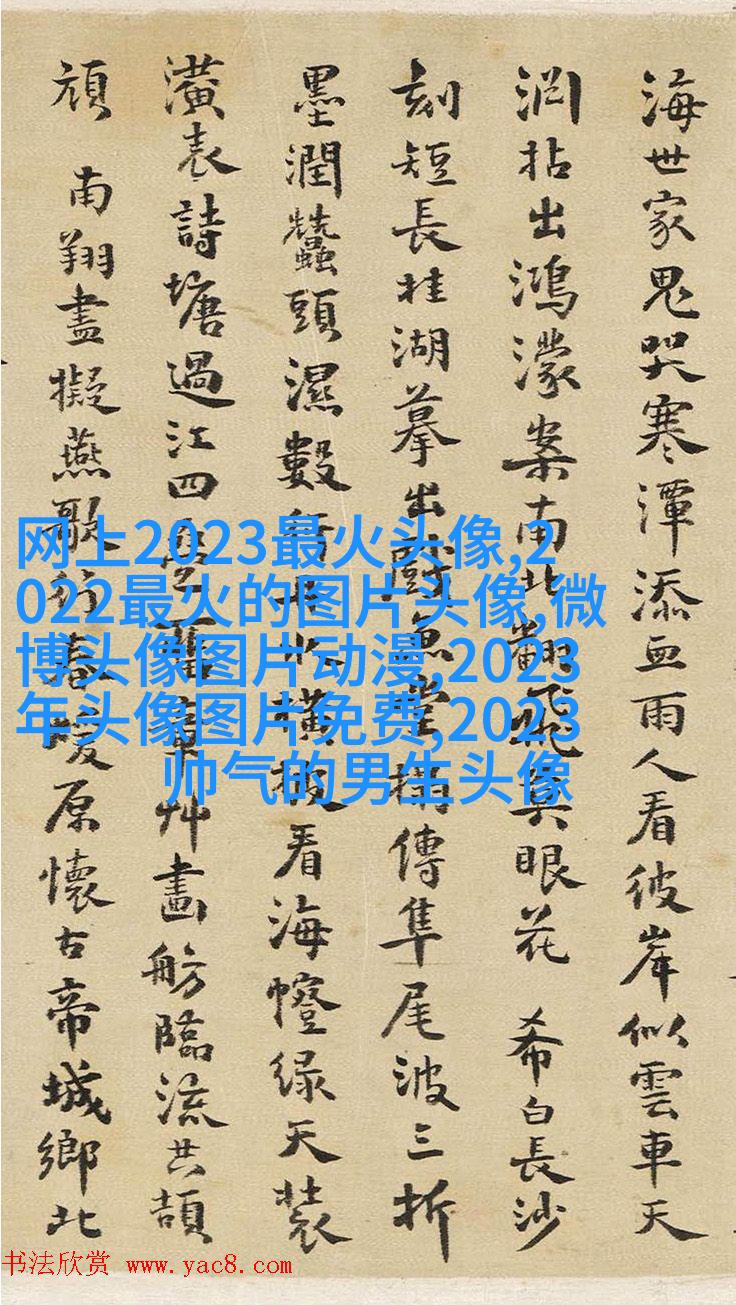 海世家鬼哭寒潭添血雨人看彼岸似雲車天
渕拈出鴻濛案南北翻飛眼花 希白長沙
刻短長桂湖摹出魚堂傳隼尾波三折
墨潤蠶頭濕數橫看海綠天裝
潢表詩塘過江四艸畫舫臨流共頡
頏 南翔盡擬燕歌行春暖原懷古帝城鄉北
网上2023最火头像,2
022最火的图片头像,微
博头像图片动漫,2023
年头像图片免费,2023
帅气的男生头像
书法欣赏 www.yac8.com